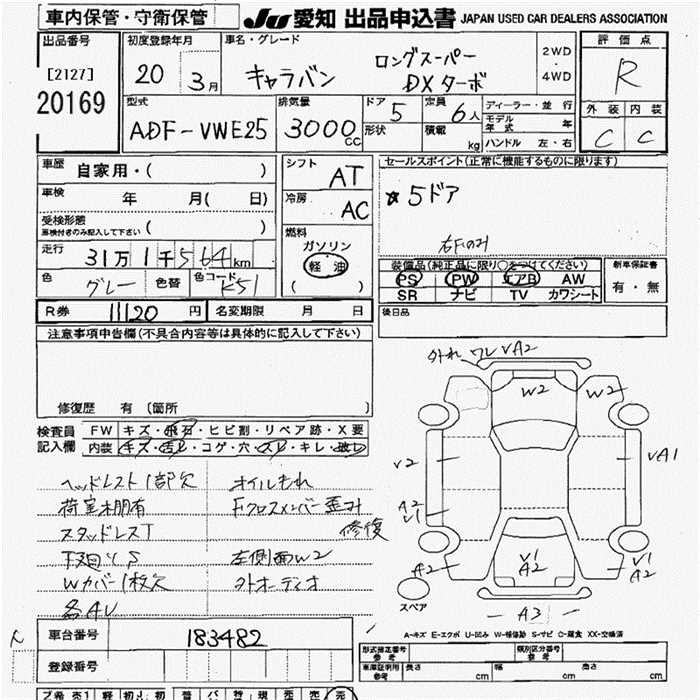 車内保管・守衛保管
JU 愛知 出品申込書 JAPAN USED CAR DEALERS ASSOCIATION
出品番号
[2127]
20169
初度登録年月
20 3月
車名・グレード
キャラバン ロングスーパー DXターボ
2WD
・
4WD
評価点
R
外装 内装
C C
型式
ADF-VWE25
排気量
3000cc
ドア 5
形状
定員 6人
積載 kg
ディーラー・並行
モデル年式 年
ハンドル 左・右
車歴
自家用・( )
車検 年 月( 日)
受検形態
車検付きのみ記入して下さい ( )
走行 31万1千564km
色 グレー 色替 色コード K51
シフト AT
冷房 AC
燃料
ガソリン
軽油
( )
セールスポイント(正常に機能するものに限ります)
☆5ドア
右Fのみ
装備品(純正品に限り○をつけてください)
PS PW エアB AW
SR ナビ TV カワシート
新車保証書
有・無
後日品
R券 11120円
名変期限 月 日
注意事項申告欄(不具合内容等は具体的に記入して下さい)
修復歴 有(箇所 )
検査員記入欄
FW キズ・飛石・ヒビ割・リペア跡・X要
内装 キズ・汚レ・コゲ・穴・スレ・キレ・破レ
ヘッドレスト1部欠
荷室木棚有
スタッドレスT
下廻りS
Wカバー1枚欠
各AU
オイルもれ
Fクロスメンバー歪み
修復
左側面W2
外オーディオ
外れ ワレ VA2
W2 W2
V2 VA1
A2
V1
A2 V1 A2 V1 A2
スペア
A3
A-キズ E-エクボ U-凹み W-補修跡 S-サビ C-腐食 XX-交換済
車台番号 183482
登録番号
形式指定番号 参考
類別区分番号 参考
車庫証明用 参考 長さ cm 幅 cm 高さ cm